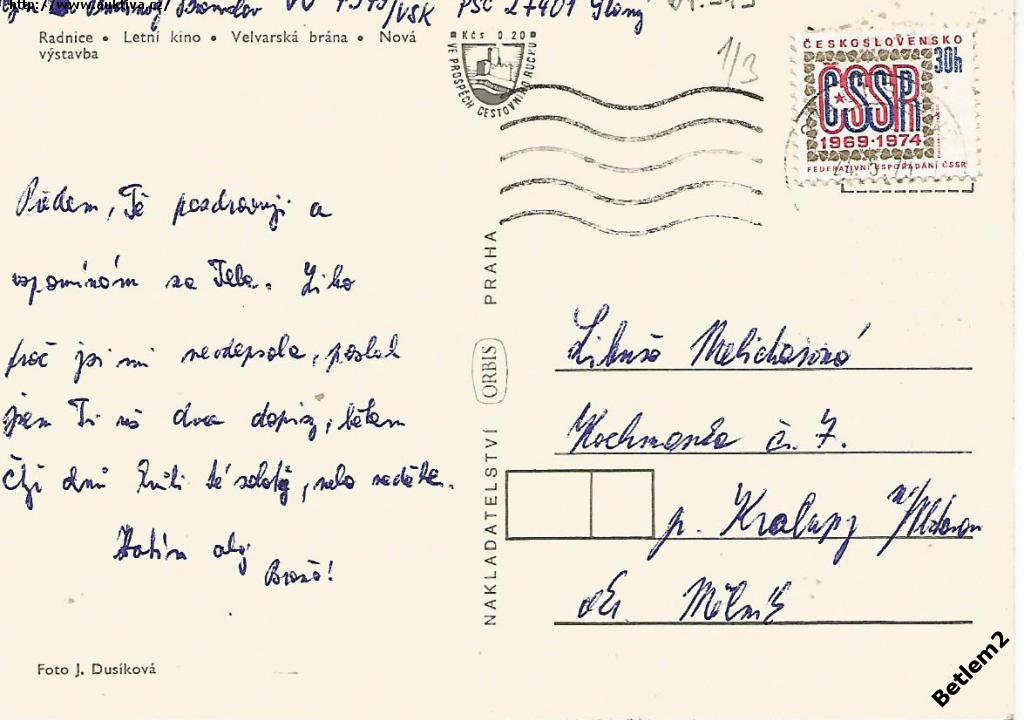 http://www.aukciva.cz/
Bronislav VÚ /VSK PSČ 27401 Slaný
Radnice • Letní kino • Velvarská brána • Nová
výstavba
Kčs 0.20
VE PROSPĚCH CESTOVNÍHO RUCHU
1/3
ČESKOSLOVENSKO
30h
ČSSR
1969·1974
FEDERATIVNÍ USPOŘÁDÁNÍ ČSSR
Předem, Tě pozdravuji a
vzpomínám na Tebe.
proč jsi mi neodepsala, poslal
jsem Ti už dva dopisy, během
čtyř dnů té soboty, nebo neděle.
Zatím ahoj
Broňa!
NAKLADATELSTVÍ ORBIS PRAHA
Libuša Melicharová
č. 7.
p. Kralupy n/Vltavou
okr. Mělník
Foto J. Dusíková
Betlem2